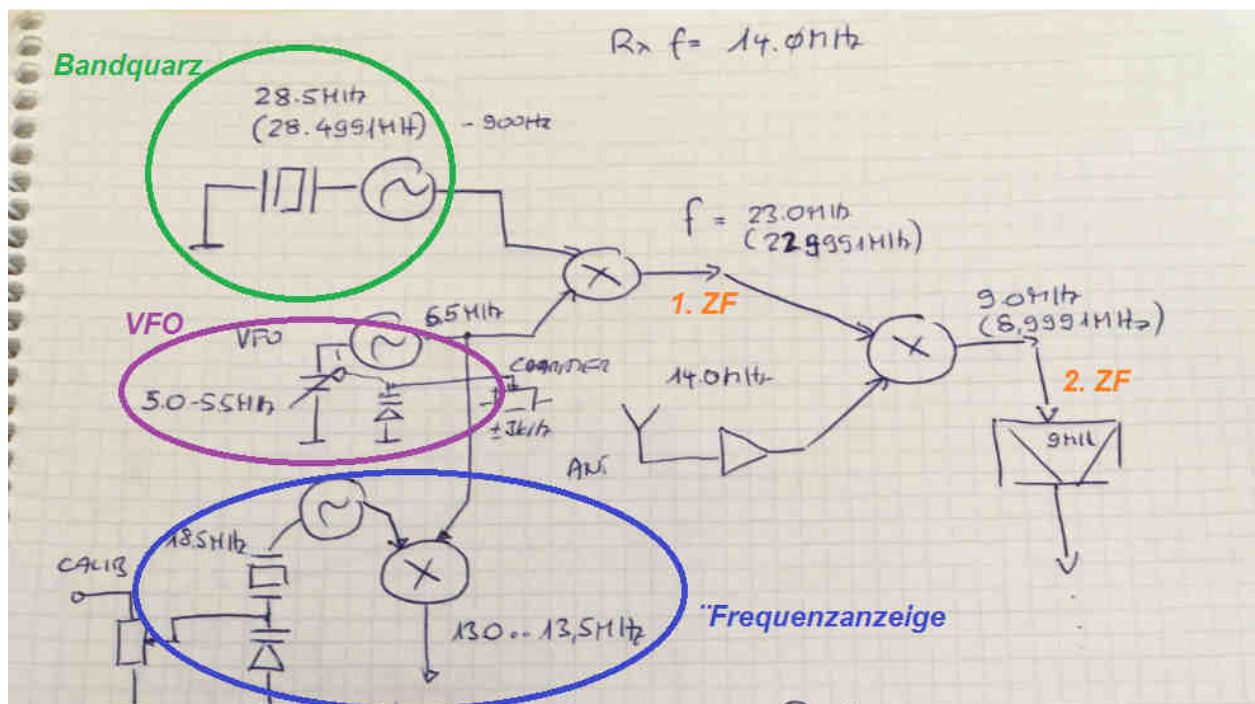 Rx f= 14.0MHz
Bandquarz
28.5MHz
(28.4991MH) - 900Hz
f = 23.0MHz
(22.9991MHz)
1. ZF
9.0MHz
(8,9991MHz)
2. ZF
9MHz
VFO
VFO
5.5MHz
5.0-5.5MHz
±3kHz
14.0MHz
ANT
18.5MHz
CALIB
13.0..13,5MHz
"Frequenzanzeige